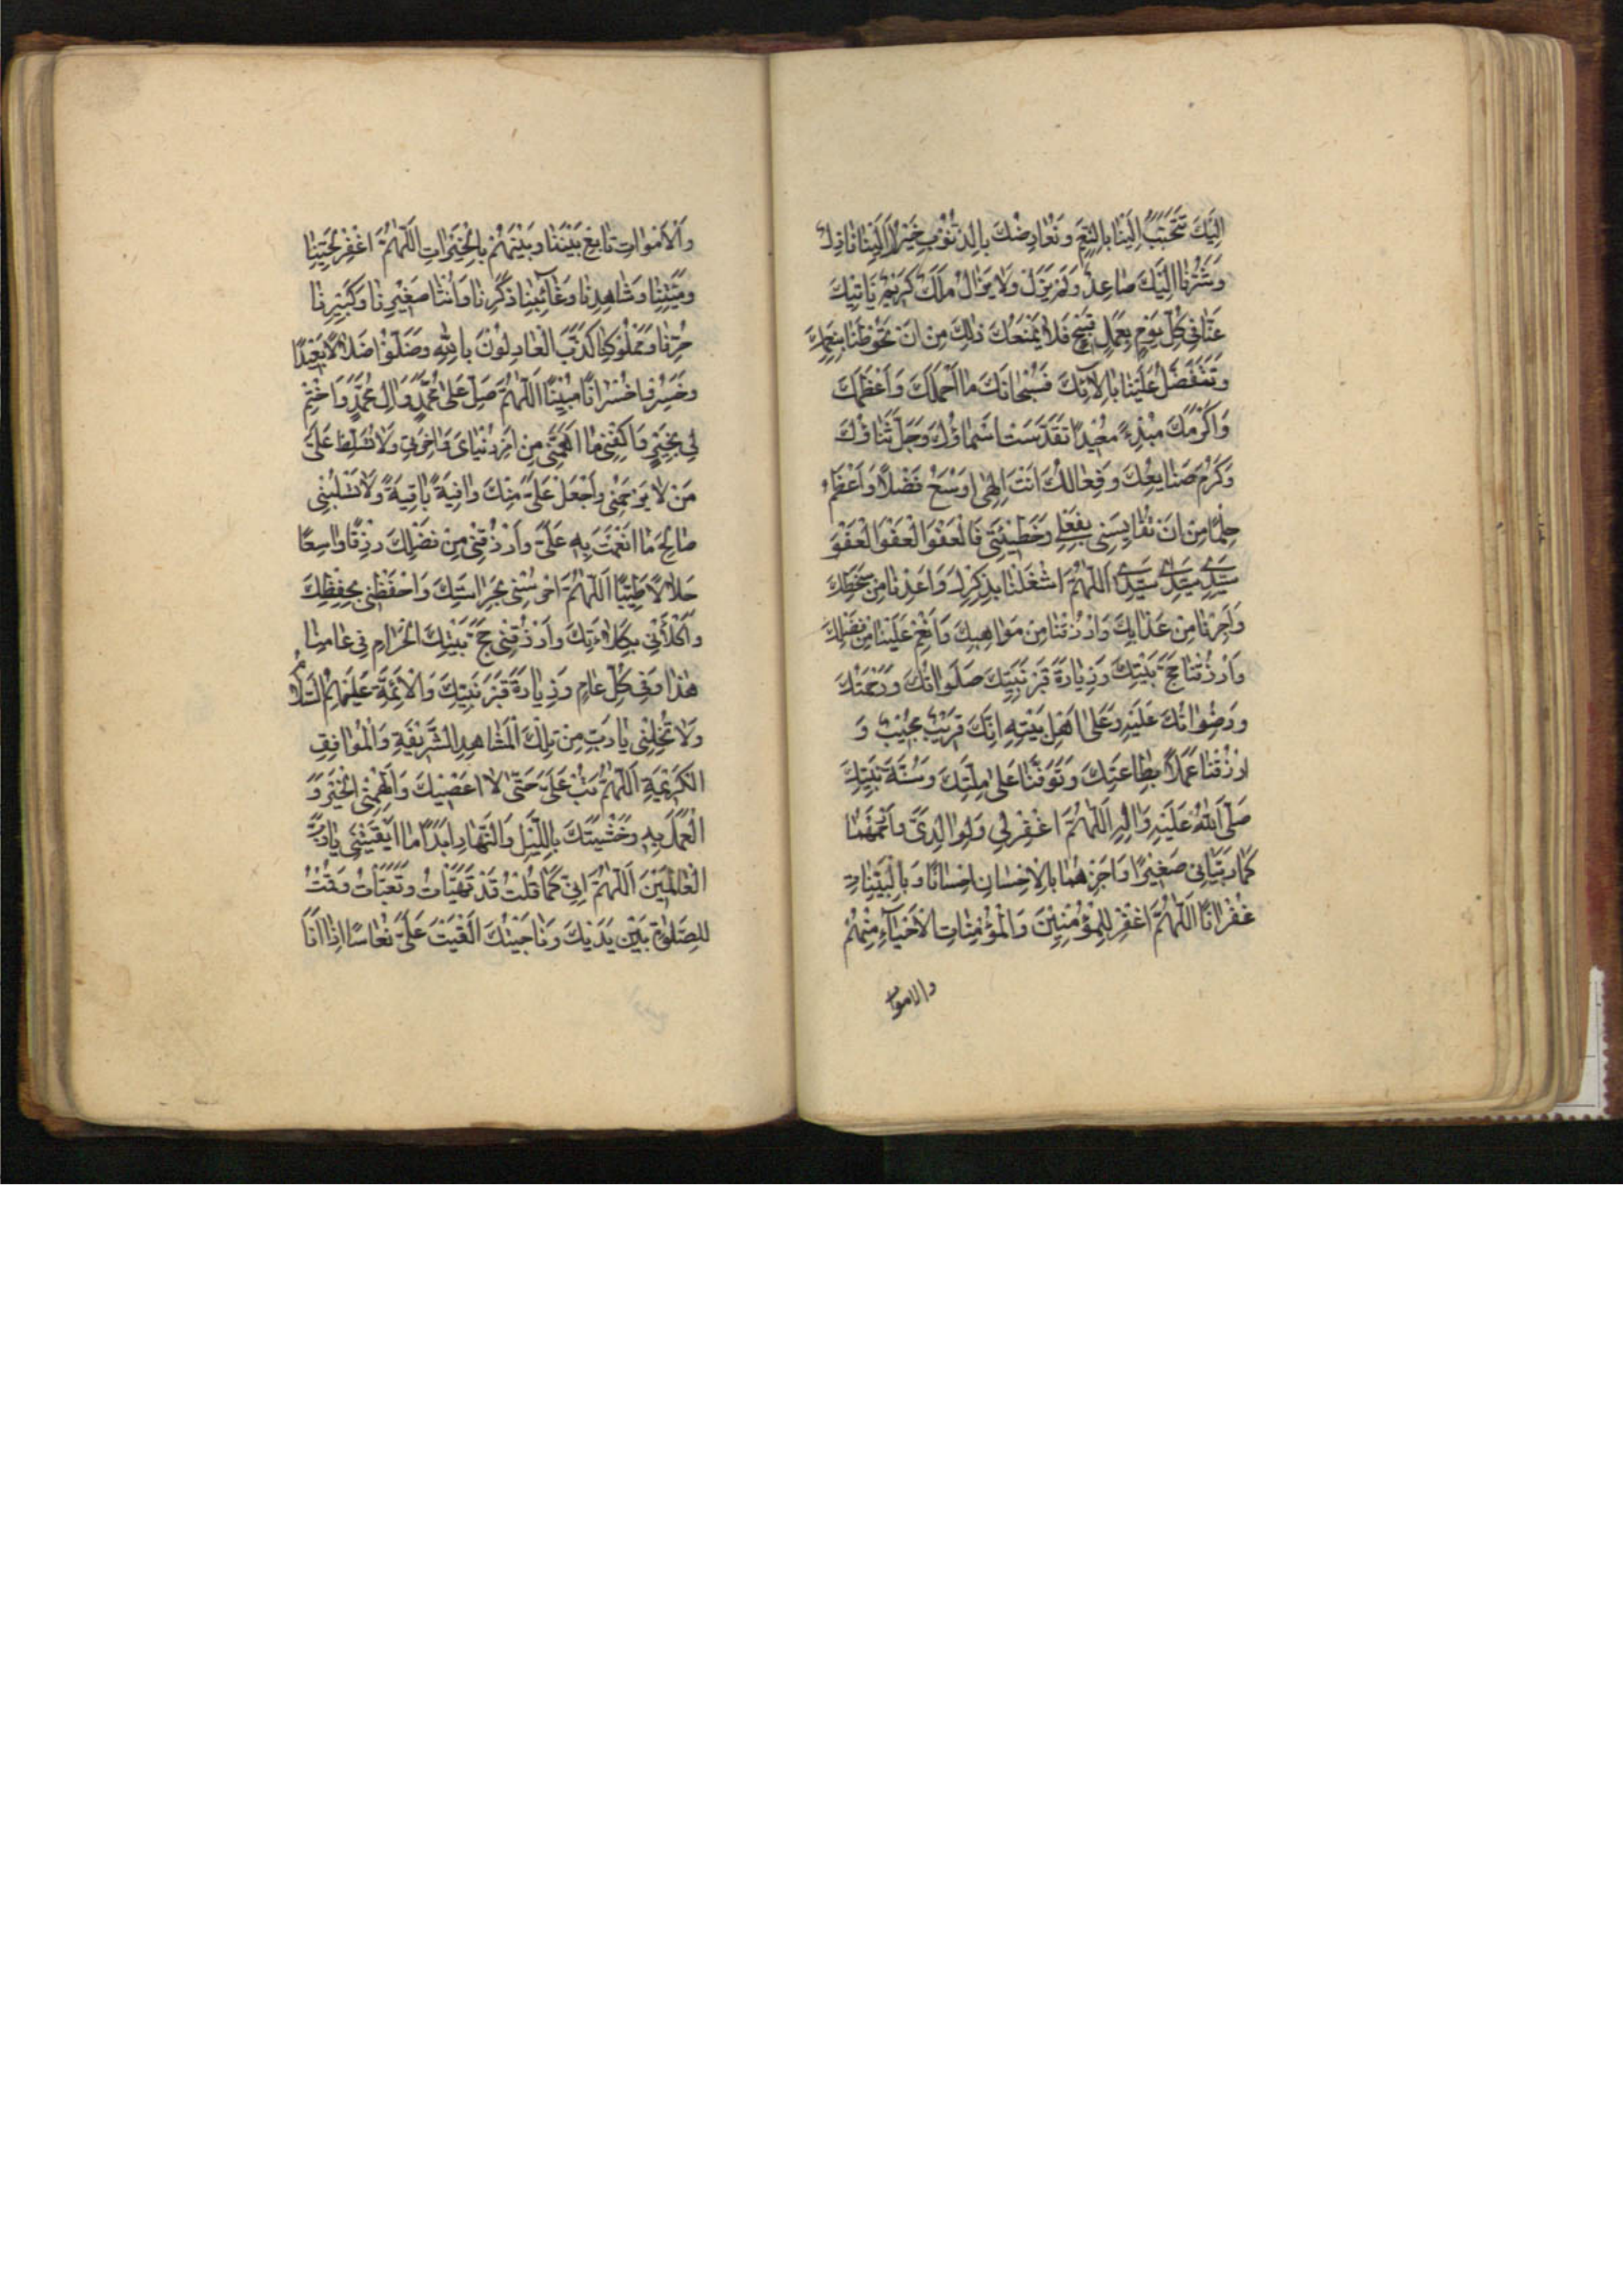 اِلَيْكَ تَتَحَبَّبُ اِلَيْنَا بِالنِّعَمِ وَنُعَارِضُكَ بِالذُّنُوبِ خَيْرُكَ اِلَيْنَا نَازِلٌ
وَشَرُّنَا اِلَيْكَ صَاعِدٌ وَلَمْ يَزَلْ وَلَا يَزَالُ مَلَكٌ كَرِيْمٌ يَأتِيكَ
عَنَّا فِي كُلِّ يَوْمٍ بِعَمَلٍ قَبِيْحٍ فَلَا يَمْنَعُكَ ذٰلِكَ مِنْ اَنْ تَحُوطَنَا بِنِعَمِكَ
وَتَتَفَضَّلَ عَلَيْنَا بِاٰلَائِكَ فَسُبْحَانَكَ مَا اَحْلَمَكَ وَاَعْظَمَكَ
وَاَكْرَمَكَ مُبْدِءً مُعِيْدًا تَقَدَّسَتْ اَسْمَاؤُكَ وَجَلَّ ثَنَاؤُكَ
وَكَرُمَ صَنَايِعُكَ وَفِعَالُكَ اَنْتَ اِلٰهِي اَوْسَعُ فَضْلًا وَاَعْظَمُ
حِلْمًا مِنْ اَنْ تُقَايِسَنِي بِفِعْلِي وَخَطِيْئَتِي فَالْعَفْوَ الْعَفْوَ الْعَفْوَ
سَيِّدِي سَيِّدِي سَيِّدِي اَللّٰهُمَّ اشْغَلْنَا بِذِكْرِكَ وَاَعِذْنَا مِنْ سَخَطِكَ
وَاَجِرْنَا مِنْ عَذَابِكَ وَارْزُقْنَا مِنْ مَوَاهِبِكَ وَاَنْعِمْ عَلَيْنَا مِنْ فَضْلِكَ
وَارْزُقْنَا حَجَّ بَيْتِكَ وَزِيَارَةَ قَبْرِ نَبِيِّكَ صَلَوَاتُكَ وَرَحْمَتُكَ
وَرِضْوَانُكَ عَلَيْهِ وَعَلٰى اَهْلِ بَيْتِهِ اِنَّكَ قَرِيْبٌ مُجِيْبٌ وَ
ارْزُقْنَا عَمَلًا بِطَاعَتِكَ وَتَوَفَّنَا عَلٰى مِلَّتِكَ وَسُنَّةِ نَبِيِّكَ
صَلَّى اللّٰهُ عَلَيْهِ وَاٰلِهِ اَللّٰهُمَّ اغْفِرْ لِي وَلِوَالِدَيَّ وَارْحَمْهُمَا
كَمَا رَبَّيَانِي صَغِيْرًا وَاجْزِهِمَا بِالْاِحْسَانِ اِحْسَانًا وَبِالسَّيِّئَاتِ
غُفْرَانًا اَللّٰهُمَّ اغْفِرْ لِلْمُؤْمِنِيْنَ وَالْمُؤْمِنَاتِ الْاَحْيَاءِ مِنْهُمْ
والاموات
وَالْاَمْوَاتِ تَابِعْ بَيْنَنَا وَبَيْنَهُمْ بِالْخَيْرَاتِ اَللّٰهُمَّ اغْفِرْ لِحَيِّنَا
وَمَيِّتِنَا وَشَاهِدِنَا وَغَائِبِنَا ذَكَرِنَا وَاُنْثَانَا صَغِيْرِنَا وَكَبِيْرِنَا
حُرِّنَا وَمَمْلُوكِنَا كَذَبَ الْعَادِلُونَ بِاللّٰهِ وَضَلُّوا ضَلَالًا بَعِيْدًا
وَخَسِرُوا خُسْرَانًا مُبِيْنًا اَللّٰهُمَّ صَلِّ عَلٰى مُحَمَّدٍ وَاٰلِ مُحَمَّدٍ وَاخْتِمْ
لِي بِخَيْرٍ وَاكْفِنِي مَا اَهَمَّنِي مِنْ اَمْرِ دُنْيَايَ وَاٰخِرَتِي وَلَا تُسَلِّطْ عَلَيَّ
مَنْ لَا يَرْحَمُنِي وَاجْعَلْ عَلَيَّ مِنْكَ وَاقِيَةً بَاقِيَةً وَلَا تَسْلُبْنِي
صَالِحَ مَا اَنْعَمْتَ بِهِ عَلَيَّ وَارْزُقْنِي مِنْ فَضْلِكَ رِزْقًا وَاسِعًا
حَلَالًا طَيِّبًا اَللّٰهُمَّ احْرُسْنِي بِحَرَاسَتِكَ وَاحْفَظْنِي بِحِفْظِكَ
وَاكْلَأْنِي بِكِلَاءَتِكَ وَارْزُقْنِي حَجَّ بَيْتِكَ الْحَرَامِ فِي عَامِنَا
هٰذَا وَفِي كُلِّ عَامٍ وَزِيَارَةَ قَبْرِ نَبِيِّكَ وَالْاَئِمَّةِ عَلَيْهِمُ السَّلَامُ
وَلَا تُخْلِنِي يَا رَبِّ مِنْ تِلْكَ الْمَشَاهِدِ الشَّرِيْفَةِ وَالْمَوَاقِفِ
الْكَرِيْمَةِ اَللّٰهُمَّ تُبْ عَلَيَّ حَتّٰى لَا اَعْصِيَكَ وَاَلْهِمْنِي الْخَيْرَ وَ
الْعَمَلَ بِهِ وَخَشْيَتَكَ بِاللَّيْلِ وَالنَّهَارِ اَبَدًا مَا اَبْقَيْتَنِي يَا رَبَّ
الْعَالَمِيْنَ اَللّٰهُمَّ اِنِّي كُلَّمَا قُلْتُ قَدْ تَهَيَّأْتُ وَتَعَبَّأْتُ وَقُمْتُ
لِلصَّلٰوةِ بَيْنَ يَدَيْكَ وَنَاجَيْتُكَ اَلْقَيْتَ عَلَيَّ نُعَاسًا اِذَا اَنَا